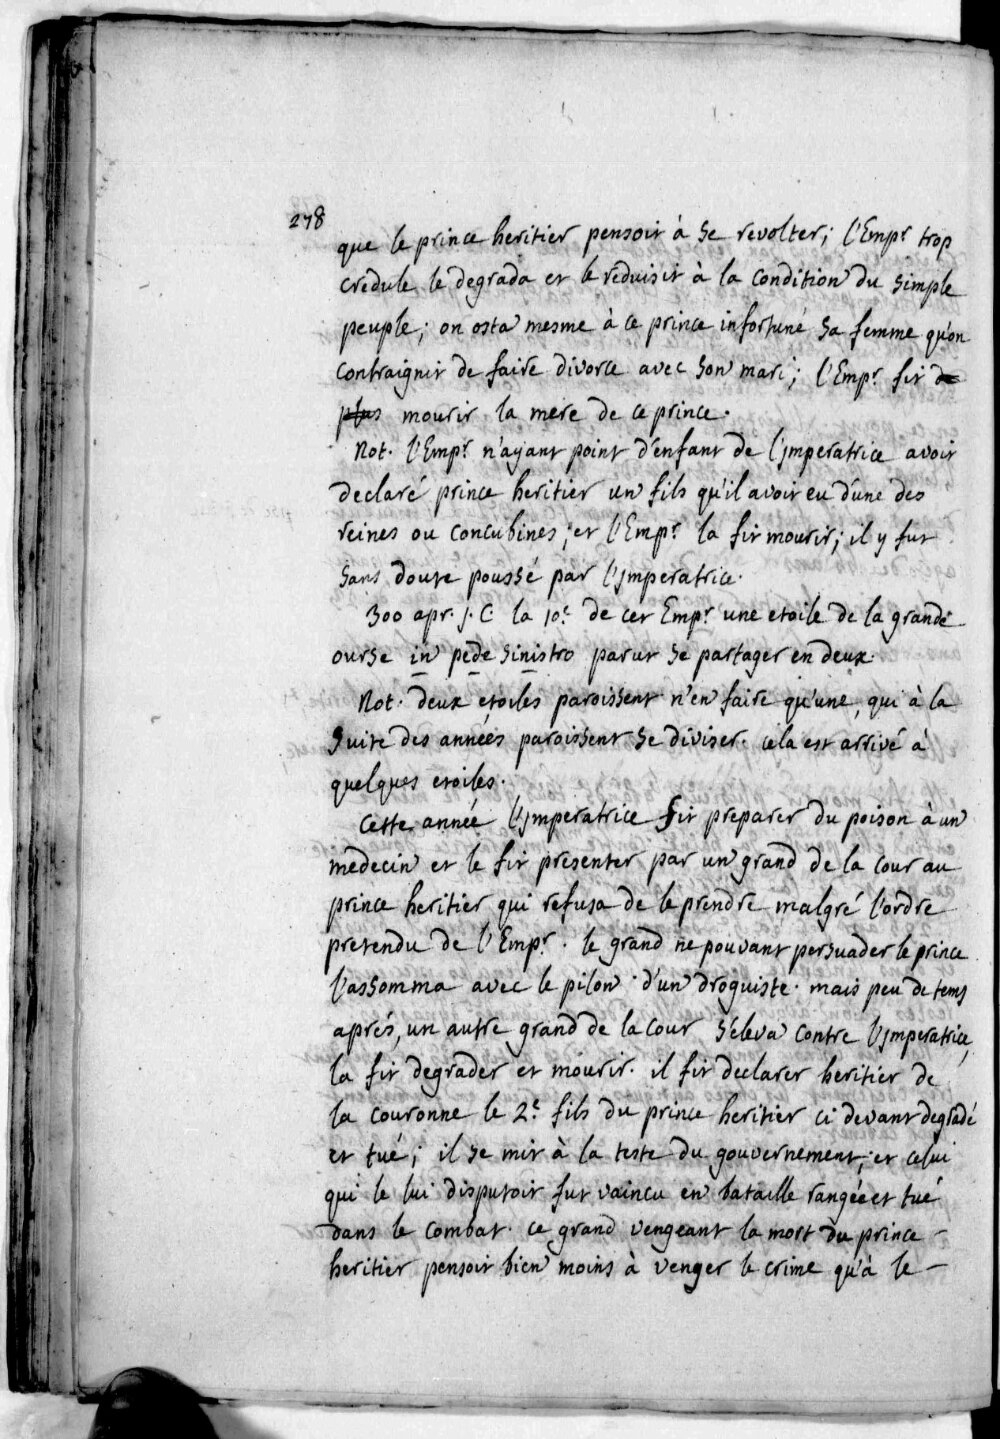 278
que le prince heritier pensoit à se revolter; l'Emp.r trop
credule le degrada et le reduisit à la condition du simple
peuple; on osta mesme à ce prince infortuné sa femme qu'on
contraignit de faire divorce avec son mari; l'Emp.r fit de
plus mourir la mere de ce prince.
Not. l'Emp.r n'ayant point d'enfant de l'jmperatrice avoit
declaré prince heritier un fils qu'il avoit eu d'une des
reines ou concubines; et l'Emp.r la fit mourir; il y fut
sans doute poussé par l'jmperatrice.
300 apr. j. C la 10.e de cet Emp.r une etoile de la grande
ourse in pede sinistro parut se partager en deux.
Not. deux etoiles paroissent n'en faire qu'une, qui à la
suite des années paroissent se diviser. cela est arrivé à
quelques etoiles.
Cette année l'jmperatrice fit preparer du poison à un
medecin et le fit presenter par un grand de la cour au
prince heritier qui refusa de le prendre malgré l'ordre
pretendu de l'Emp.r. le grand ne pouvant persuader le prince
l'assomma avec le pilon d'un droguiste. mais peu de tems
aprés, un autre grand de la cour s'eleva contre l'jmperatrice,
la fit degrader et mourir. il fit declarer heritier de
la couronne le 2.e fils du prince heritier ci devant degradé
et tué; il se mit à la teste du gouvernement; et celui
qui le lui disputoit fut vaincu en bataille rangée et tué
dans le combat. ce grand vengeant la mort du prince
heritier pensoit bien moins à venger le crime qu'à le